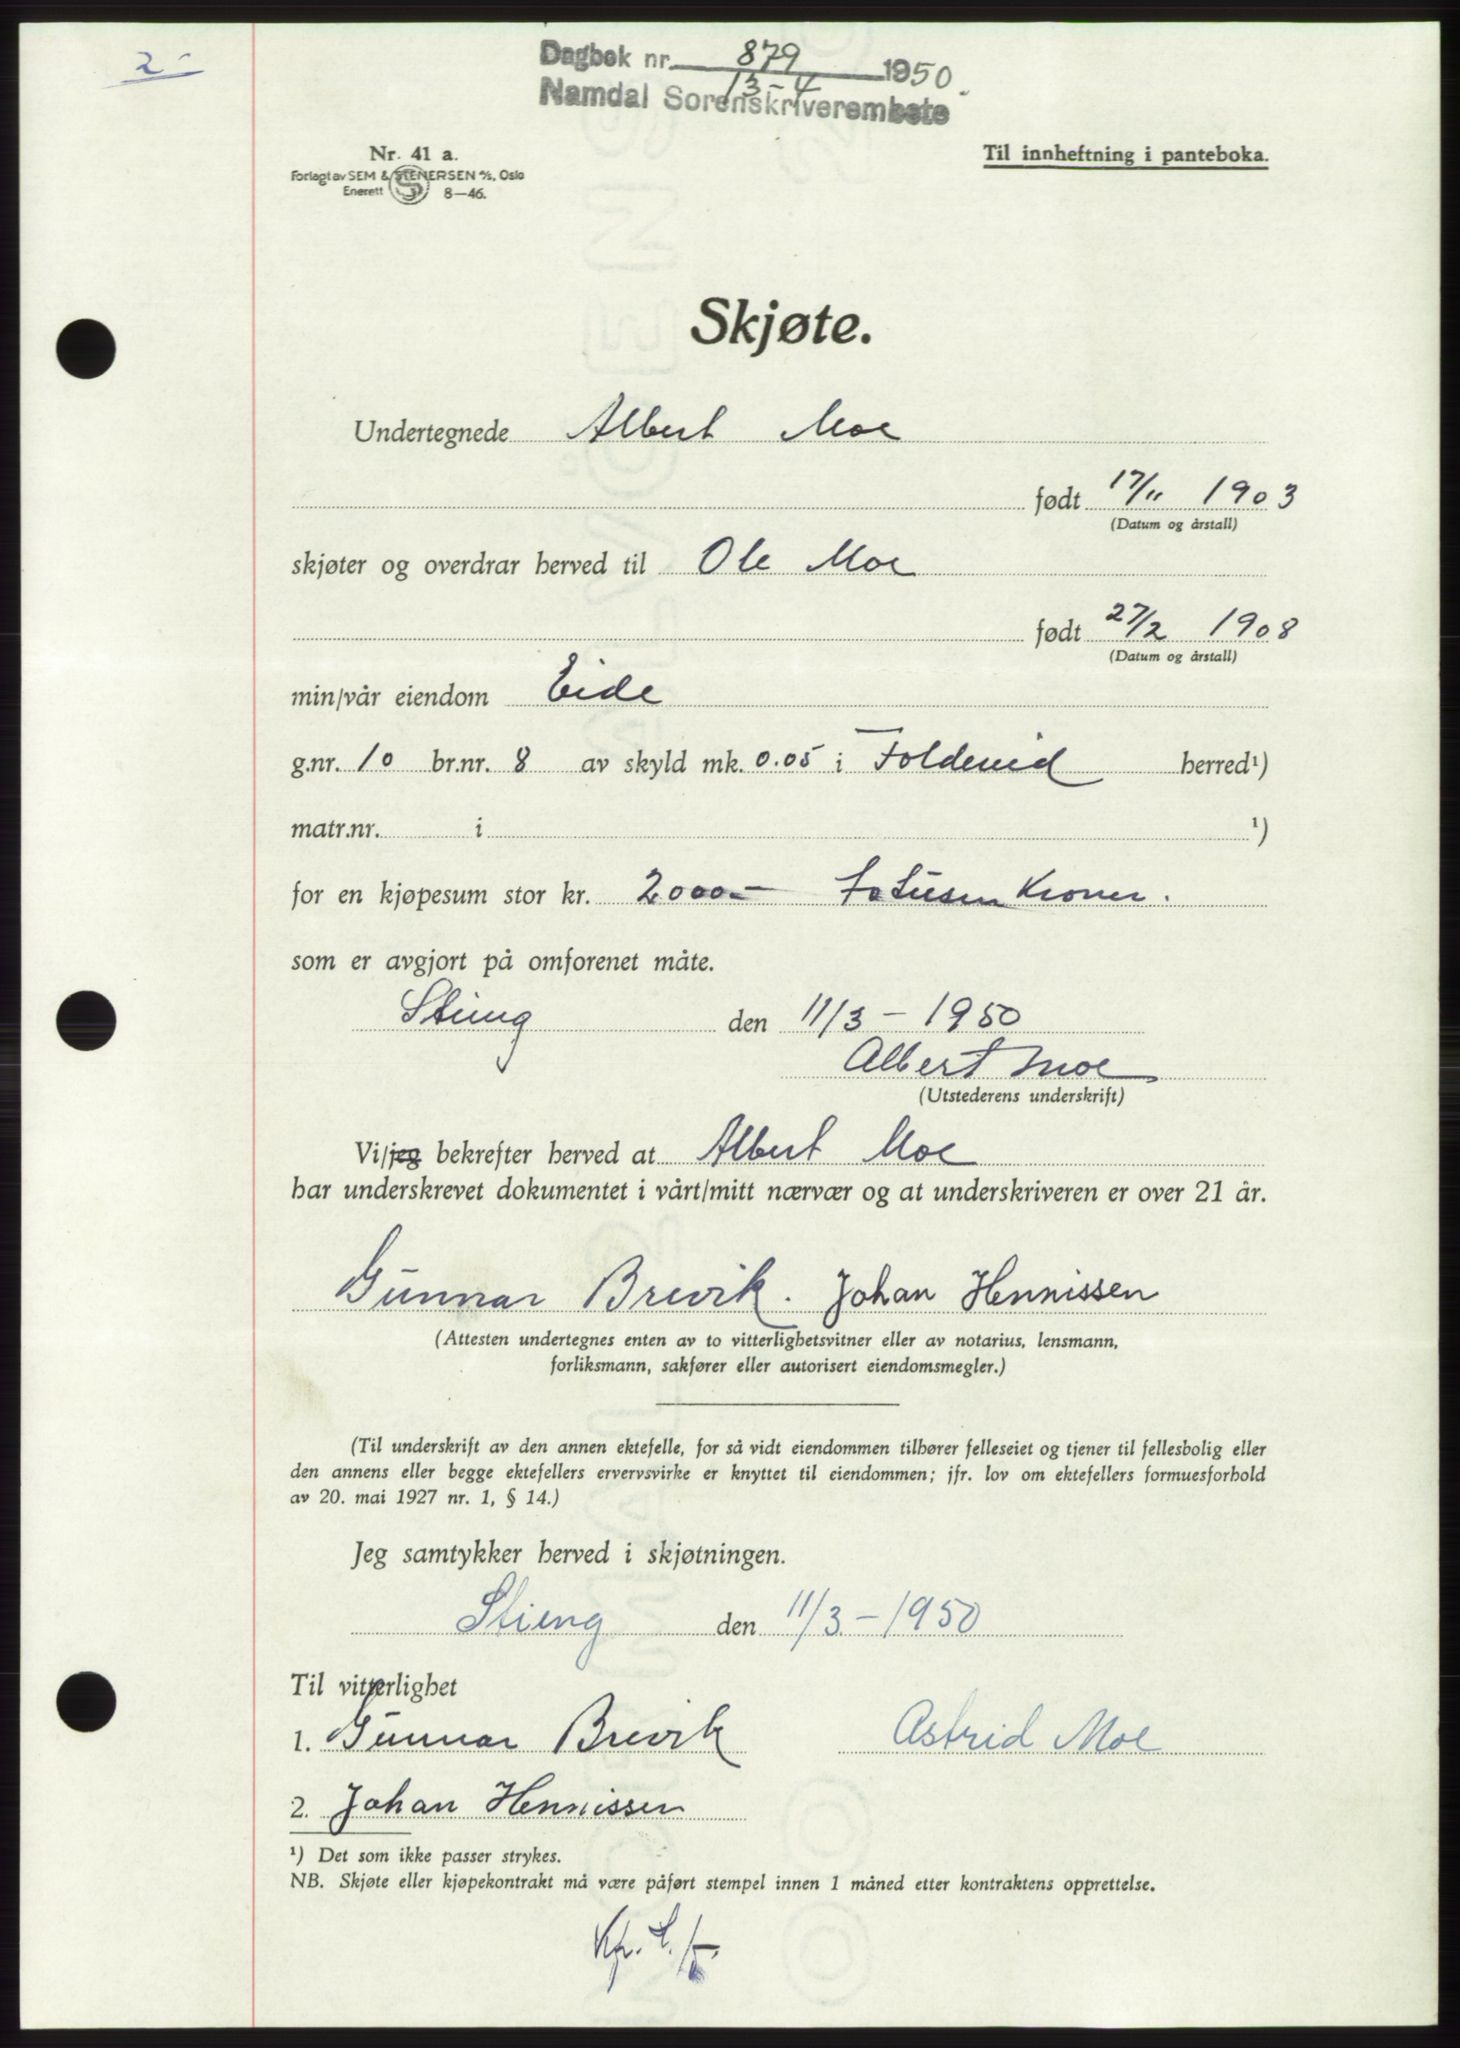 2-
Dagbok nr. 879 1950.
13-4
Namdal Sorenskriverembete
Nr. 41 a.
Forlagt av SEM & STENERSEN A/S, Oslo
Enerett S 8—46.
Til innheftning i panteboka.
Skjøte.
Undertegnede Albert Moe
født 17/11 1903
(Datum og årstall)
skjøter og overdrar herved til Ole Moe
født 27/2 1908
(Datum og årstall)
min/vår eiendom Eide
g.nr. 10 br.nr. 8 av skyld mk. 0.05 i Foldereid herred¹)
matr.nr. i ¹)
for en kjøpesum stor kr. 2000- Totusen Kroner.
som er avgjort på omforenet måte.
den 11/3 - 1950
Albert Moe
(Utstederens underskrift)
Vi/jeg bekrefter herved at Albert Moe
har underskrevet dokumentet i vårt/mitt nærvær og at underskriveren er over 21 år.
Gunnar Brevik. Johan Hennissen
(Attesten undertegnes enten av to vitterlighetsvitner eller av notarius, lensmann,
forliksmann, sakfører eller autorisert eiendomsmegler.)
(Til underskrift av den annen ektefelle, for så vidt eiendommen tilhører felleseiet og tjener til fellesbolig eller
den annens eller begge ektefellers ervervsvirke er knyttet til eiendommen; jfr. lov om ektefellers formuesforhold
av 20. mai 1927 nr. 1, § 14.)
Jeg samtykker herved i skjøtningen.
den 11/3 - 1950
Til vitterlighet
1. Gunnar Brevik Astrid Moe
2. Johan Hennissen
¹) Det som ikke passer strykes.
NB. Skjøte eller kjøpekontrakt må være påført stempel innen 1 måned etter kontraktens opprettelse.